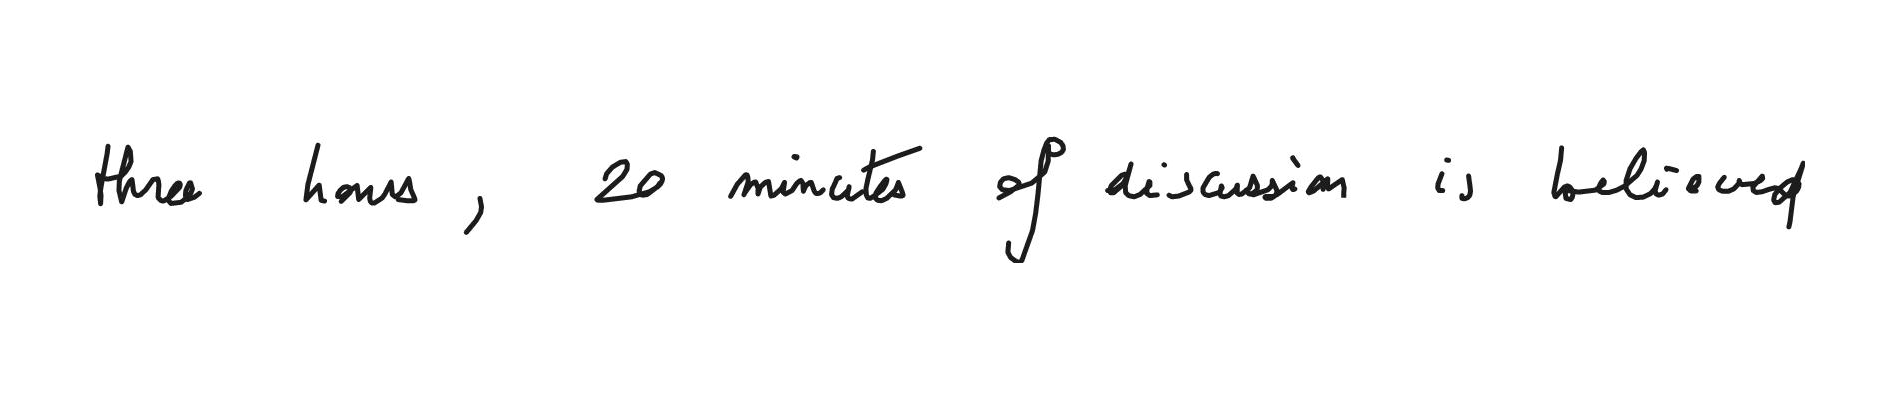 three hours, 20 minutes of discussion is believed